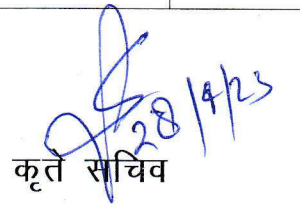 28/4/23
कृते सचिव